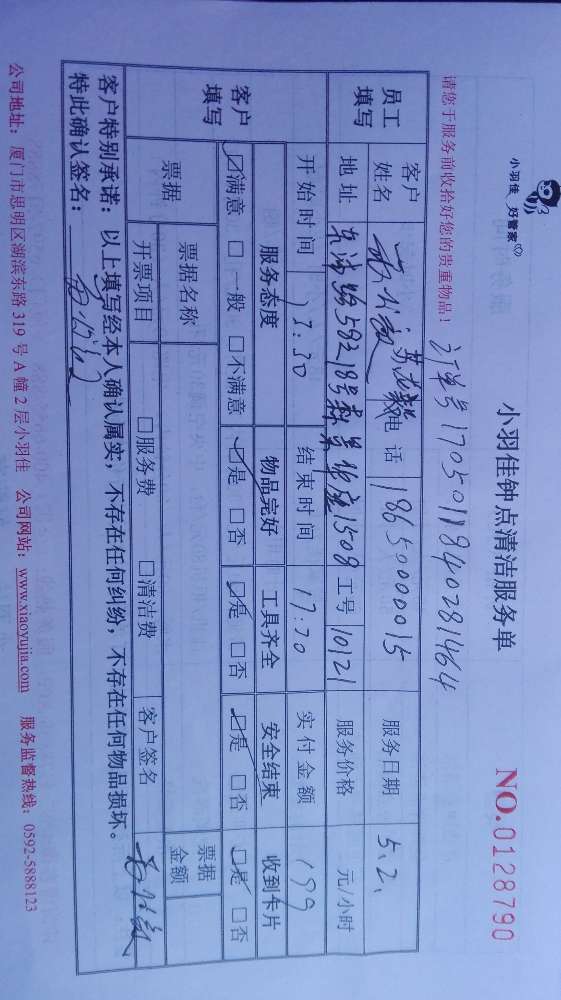 小羽佳 好管家
小羽佳钟点清洁服务单
NO.0128790
请您于服务前收拾好您的贵重物品！
订单号1705011840281464
员工填写
客户姓名
电话 18650000015
服务日期 5.2.
地址 592 18号 1508
工号 10121
服务价格 元/小时
客户填写
开始时间 13.30
结束时间 17:30
实付金额 199
服务态度 物品完好 工具齐全 安全结束 收到卡片
☑满意 □一般 □不满意 ☑是 □否 ☑是 □否 ☑是 □否 ☑是 □否
票据 票据名称 票据金额
开票项目 □服务费 □清洁费 客户签名
客户特别承诺：以上填写经本人确认属实，不存在任何纠纷，不存在任何物品损坏。
特此确认签名：
公司地址：厦门市思明区湖滨东路 319 号 A 幢 2 层小羽佳 公司网站：www.xiaoyujia.com 服务监督热线：0592-5888123